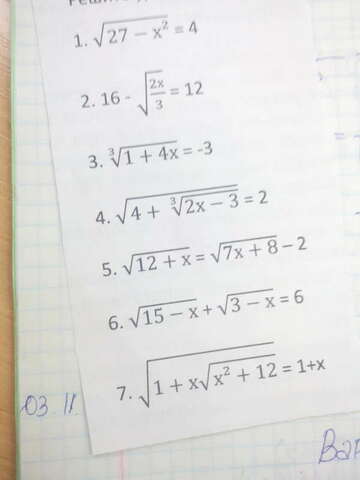 1. √(27 − x²) = 4
2. 16 - √(2x/3) = 12
3. ∛(1 + 4x) = -3
4. √(4 + ∛(2x − 3)) = 2
5. √(12 + x) = √(7x + 8) − 2
6. √(15 − x) + √(3 − x) = 6
7. √(1 + x√(x² + 12)) = 1+x
03 11.